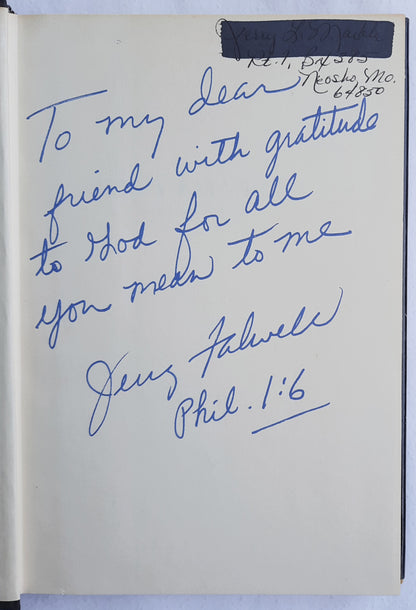 Jerry L.
Rt. 1, Box 385
Neosho, Mo.
64850
To my dear
friend with gratitude
to God for all
you mean to me
Jerry Falwell
Phil. 1:6